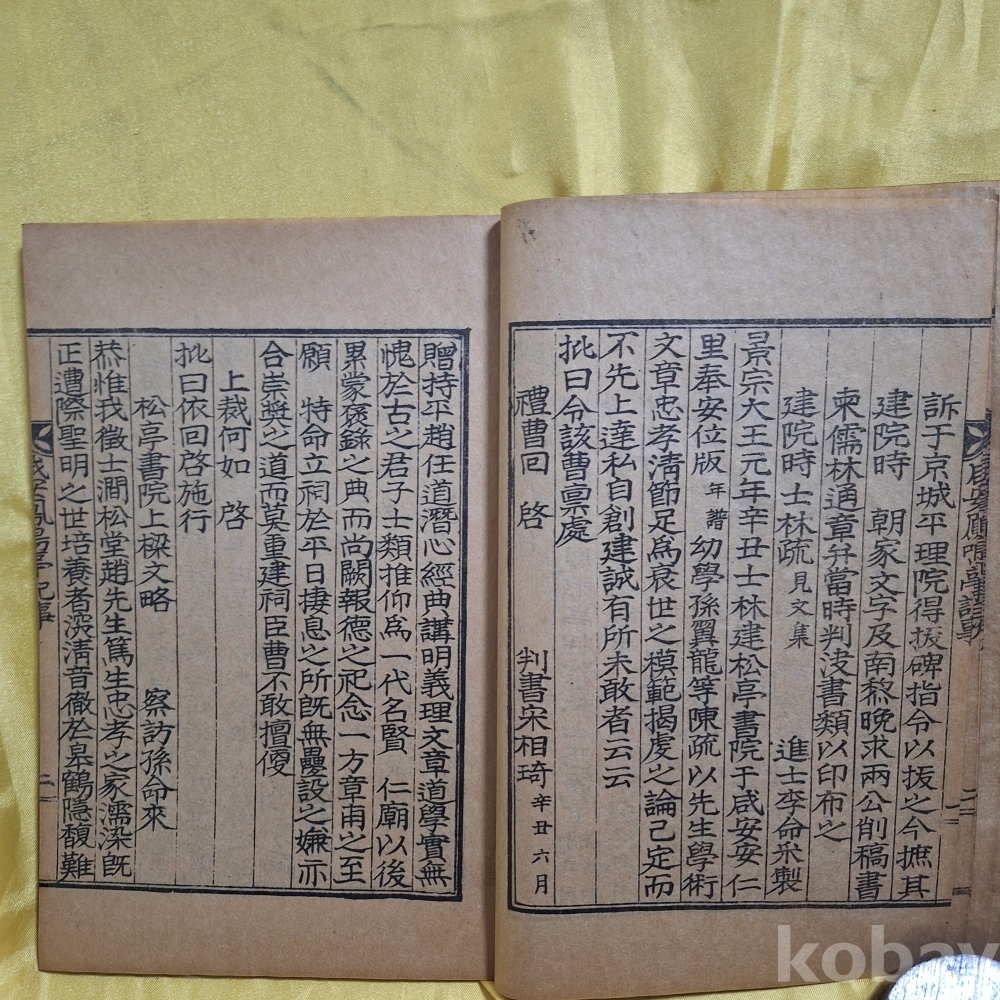 訴于京城平理院得拔碑指令以拔之今摭其
建院時 朝家文字及南蔡晚求兩公削稿書
柬儒林通章幷當時判決書類以印布之
建院時士林疏 見文集 進士李命采製
景宗大王元年辛丑士林建松亭書院于咸安安仁
里奉安位版 年譜 幼學孫翼龍等陳疏以先生學術
文章忠孝淸節足爲衰世之模範揭虔之論已定而
不先上達私自創建誠有所未敢者云云
批曰令該曹禀處
禮曹回 啓 判書宋相琦 辛丑六月
贈持平趙任道潛心經典講明義理文章道學實無
愧於古之君子士類推仰爲一代名賢 仁廟以後
累蒙褒錄之典而尙闕報德之祀念一方章甫之至
願 特命立祠於平日棲息之所旣無疊設之嫌亦
合崇奬之道而莫重建祠臣曹不敢擅便
上裁何如 啓
批曰依回啓施行
松亭書院上樑文略 察訪孫命來
恭惟我徵士澗松堂趙先生篤生忠孝之家濡染旣
正遭際聖明之世培養者深淸音徹於皐鶴隱馥難
二
kobay